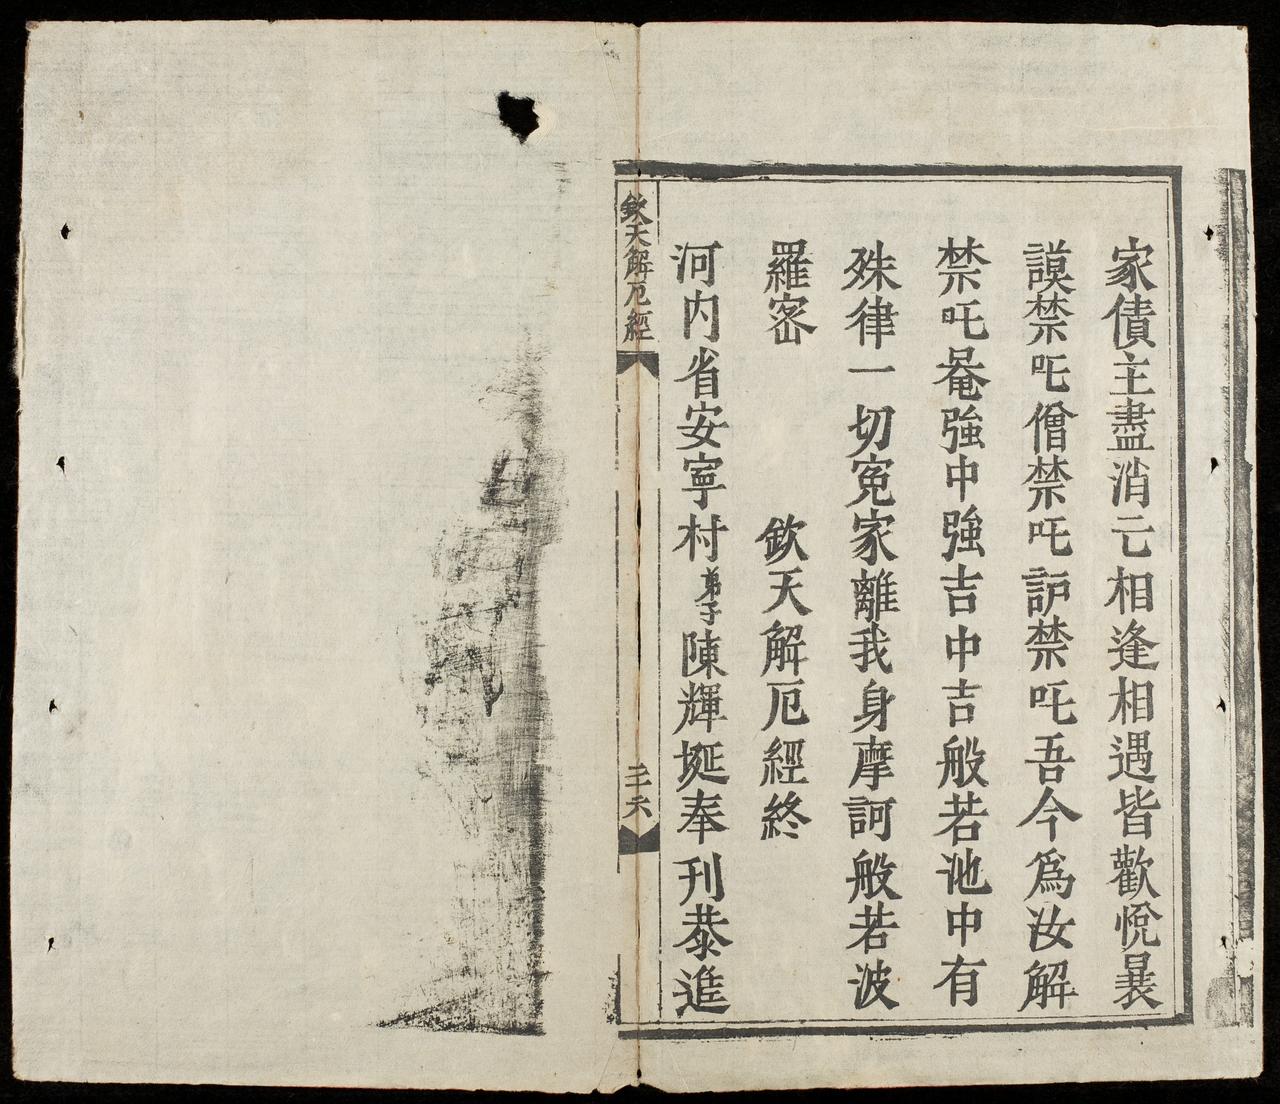 家債主盡消亡相逢相遇皆歡悅曩
謨禁吒僧禁吒訶禁吒吾今爲汝解
禁吒菴強中強吉中吉般若池中有
殊律一切冤家離我身摩訶般若波
羅密 欽天解厄經終
河内省安寧村弟子陳輝埏奉刊恭進
欽天解厄經
三六